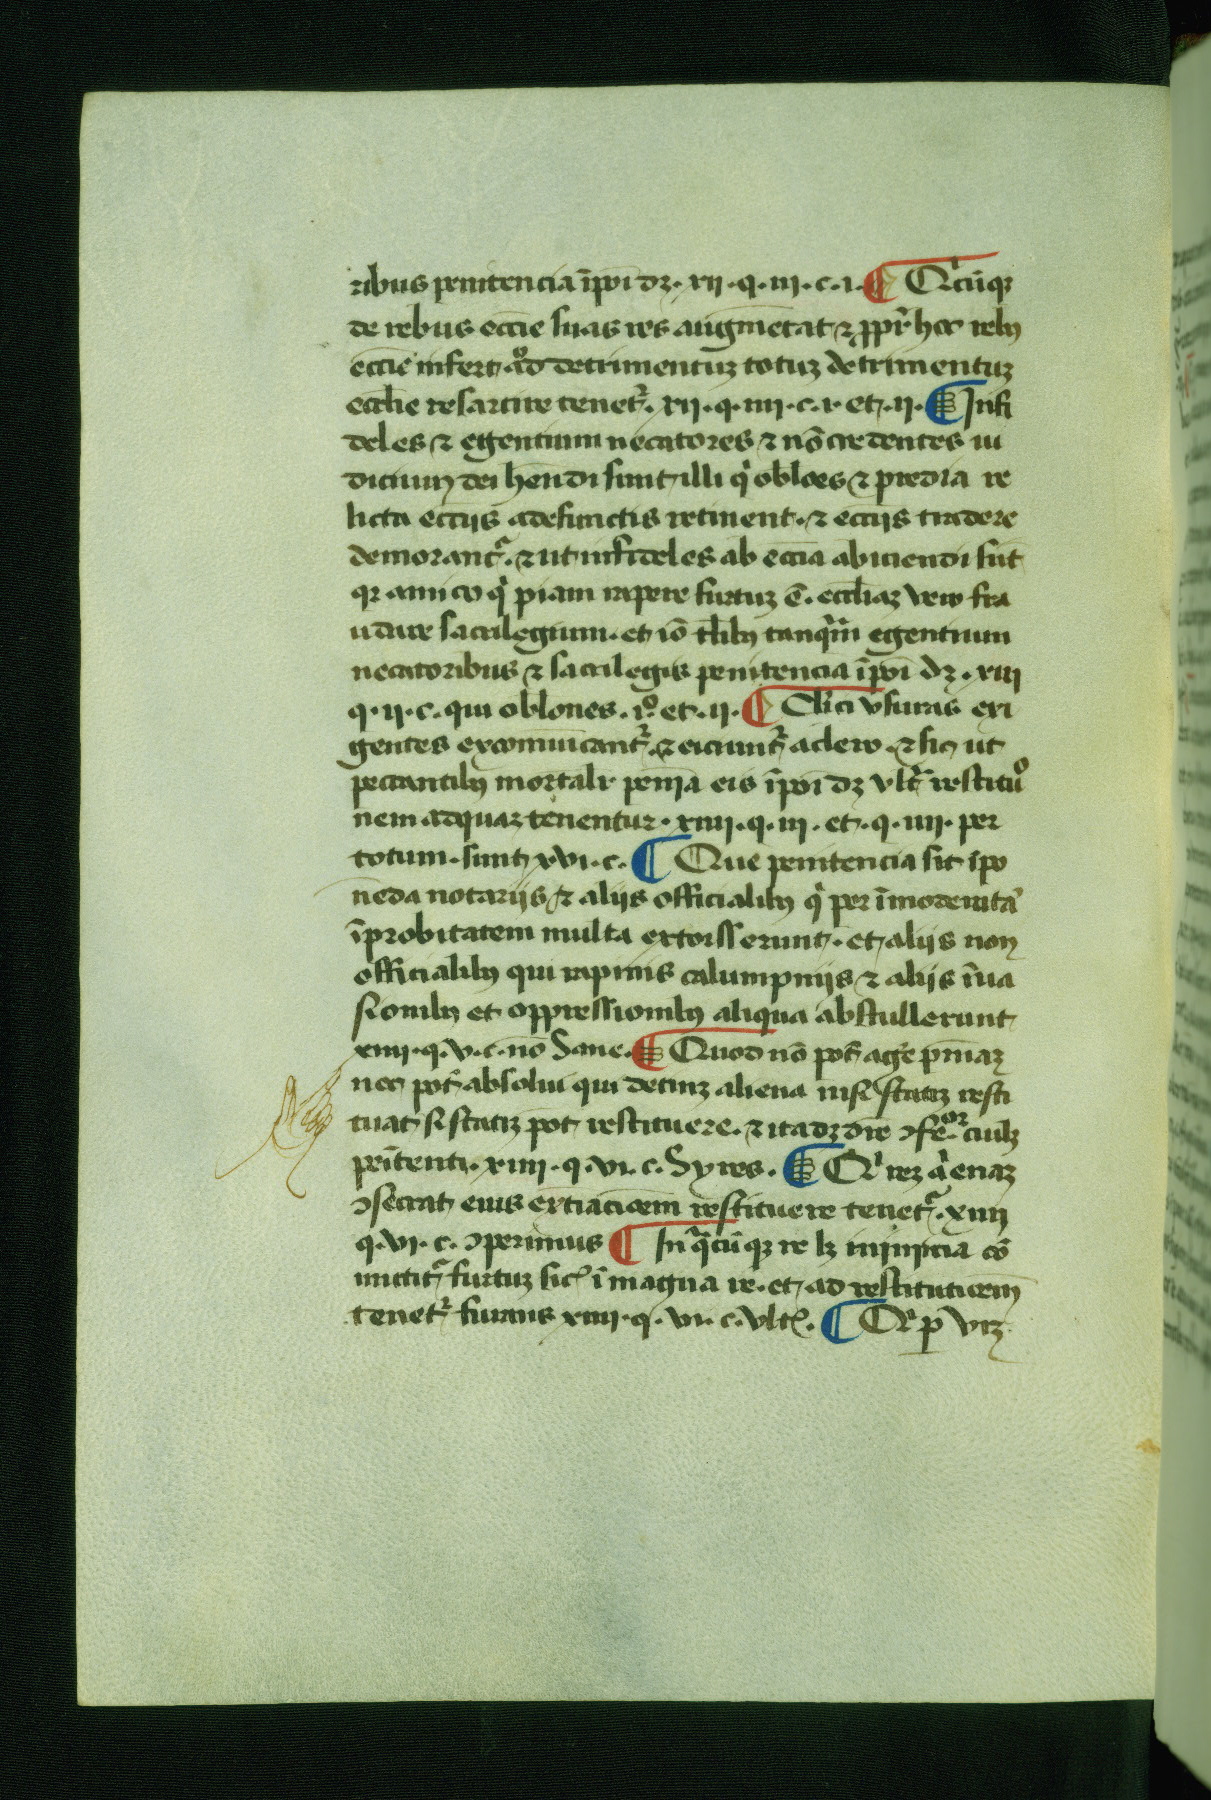 ribus penitencia īpoī dꝫ · xii · q · iii · c · i · ¶ Qͥcūqꝫ
de rebus eccīe suas res augmētat ⁊ ꝓpꝛ̄ hoc rebꝰ
eccīe infert aͦd detrimentuꝫ totuꝫ detrimentuꝫ
eccl̄ie resarcire tenet᷑ · xii · q · iiii · c · i · et · ii · ¶ Infi
deles ⁊ egentium necatores ⁊ nō credentes iu
dicium dei hēndi sunt illi qͥ oblōes ⁊ predia re
licta eccīis a defunctis retinent · ⁊ eccīis tradere
demorant᷑ · ⁊ ut infideles ab eccīa abiciendi sūt
qꝛ amico qͥ piam rapere furtuꝫ ē · eccl̄iaꝫ vero fra
udare sacrilegium · et iō tl̄ibꝰ tanqͣm̄ egentium
necatoribus ⁊ sacrilegis penitencia īpoī dꝫ · xiii
q · ii · c · qui oblones · iͦ · et · ii · ¶ Cl̄ici vsuras exi
gentes excomūicant᷑ · ⁊ eiciunt᷑ a clero · ⁊ sic ut
peccantibꝰ mortalr̄ penīa eis īpoī dꝫ vltͣ restituͦ
nem ad quaꝫ tenentur · xiiii · q · iii · et · q · iiii · per
totum · sunt xvi · c · ¶ Que penitencia sit īpo
nēda notariis ⁊ aliis officialibꝰ qͥ per īmoderatā
īprobitatem multa extorsserunt · et aliis non
officialibꝰ qui rapinis calumpniis ⁊ aliis īua
sionibꝰ et oppressionibꝰ aliqua abstullerunt
xiiii · q · v · c · nō Sane · ¶ Quod nō pōt agēe pēniaꝫ
nec pōt absolui qui detinꝫ aliena nisi statiꝫ resti
tuat si statiꝫ pot restituere · ⁊ ita dꝫ dīre ↄfē · oꝛ cuilꝫ
peītenti · xiiii · q · vi · c · Si res · ¶ Qͥ reꝫ aͥenaꝫ
ↄsecrat eius extiacōem restituere tenet᷑ · xiiii
q · vi · c · ↄperimus ¶ In qͣcūqꝫ re lꝫ minima cō
mictit᷑ furtuꝫ sicͭ ī magna re · et ad restitutiōem
tenet᷑ furans xiiii · q · vi · c · vltͦ · ¶ Qͥ ꝑ viꝫ